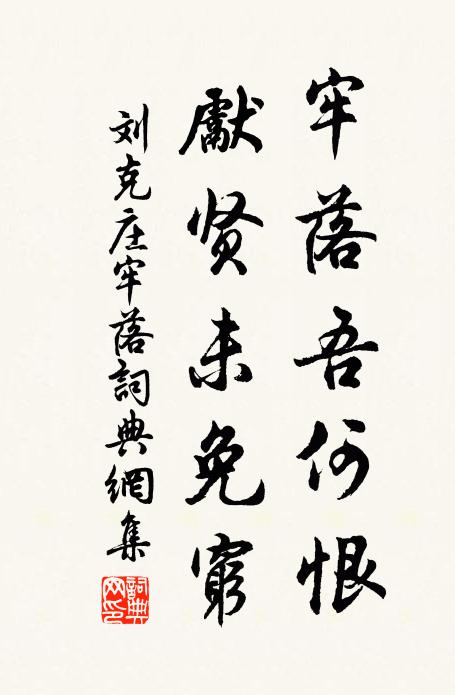 牢落吾何恨
獻贤未免窮
刘克庄牢落詞典網集
詞典网印